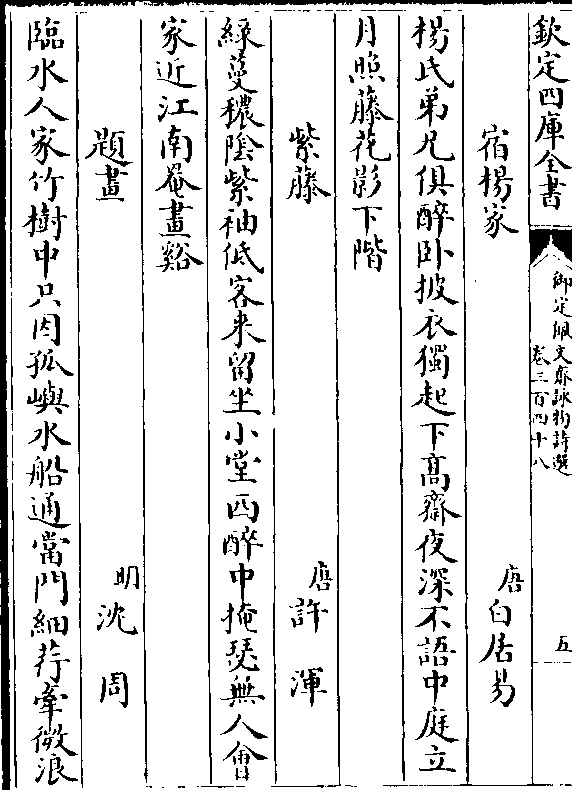 欽定四庫全書
御定佩文齋詠物詩選
卷三百四十八
五
宿楊家 唐白居易
楊氏弟兄俱醉卧披衣獨起下髙齋夜深不語中庭立
月照藤花影下階
紫藤 唐許渾
緑蔓穠陰紫袖低客來留坐小堂西醉中掩瑟無人會
家近江南罨畫谿
題畫 明沈周
臨水人家竹樹中只因孤嶼水船通當門細荇牽微浪